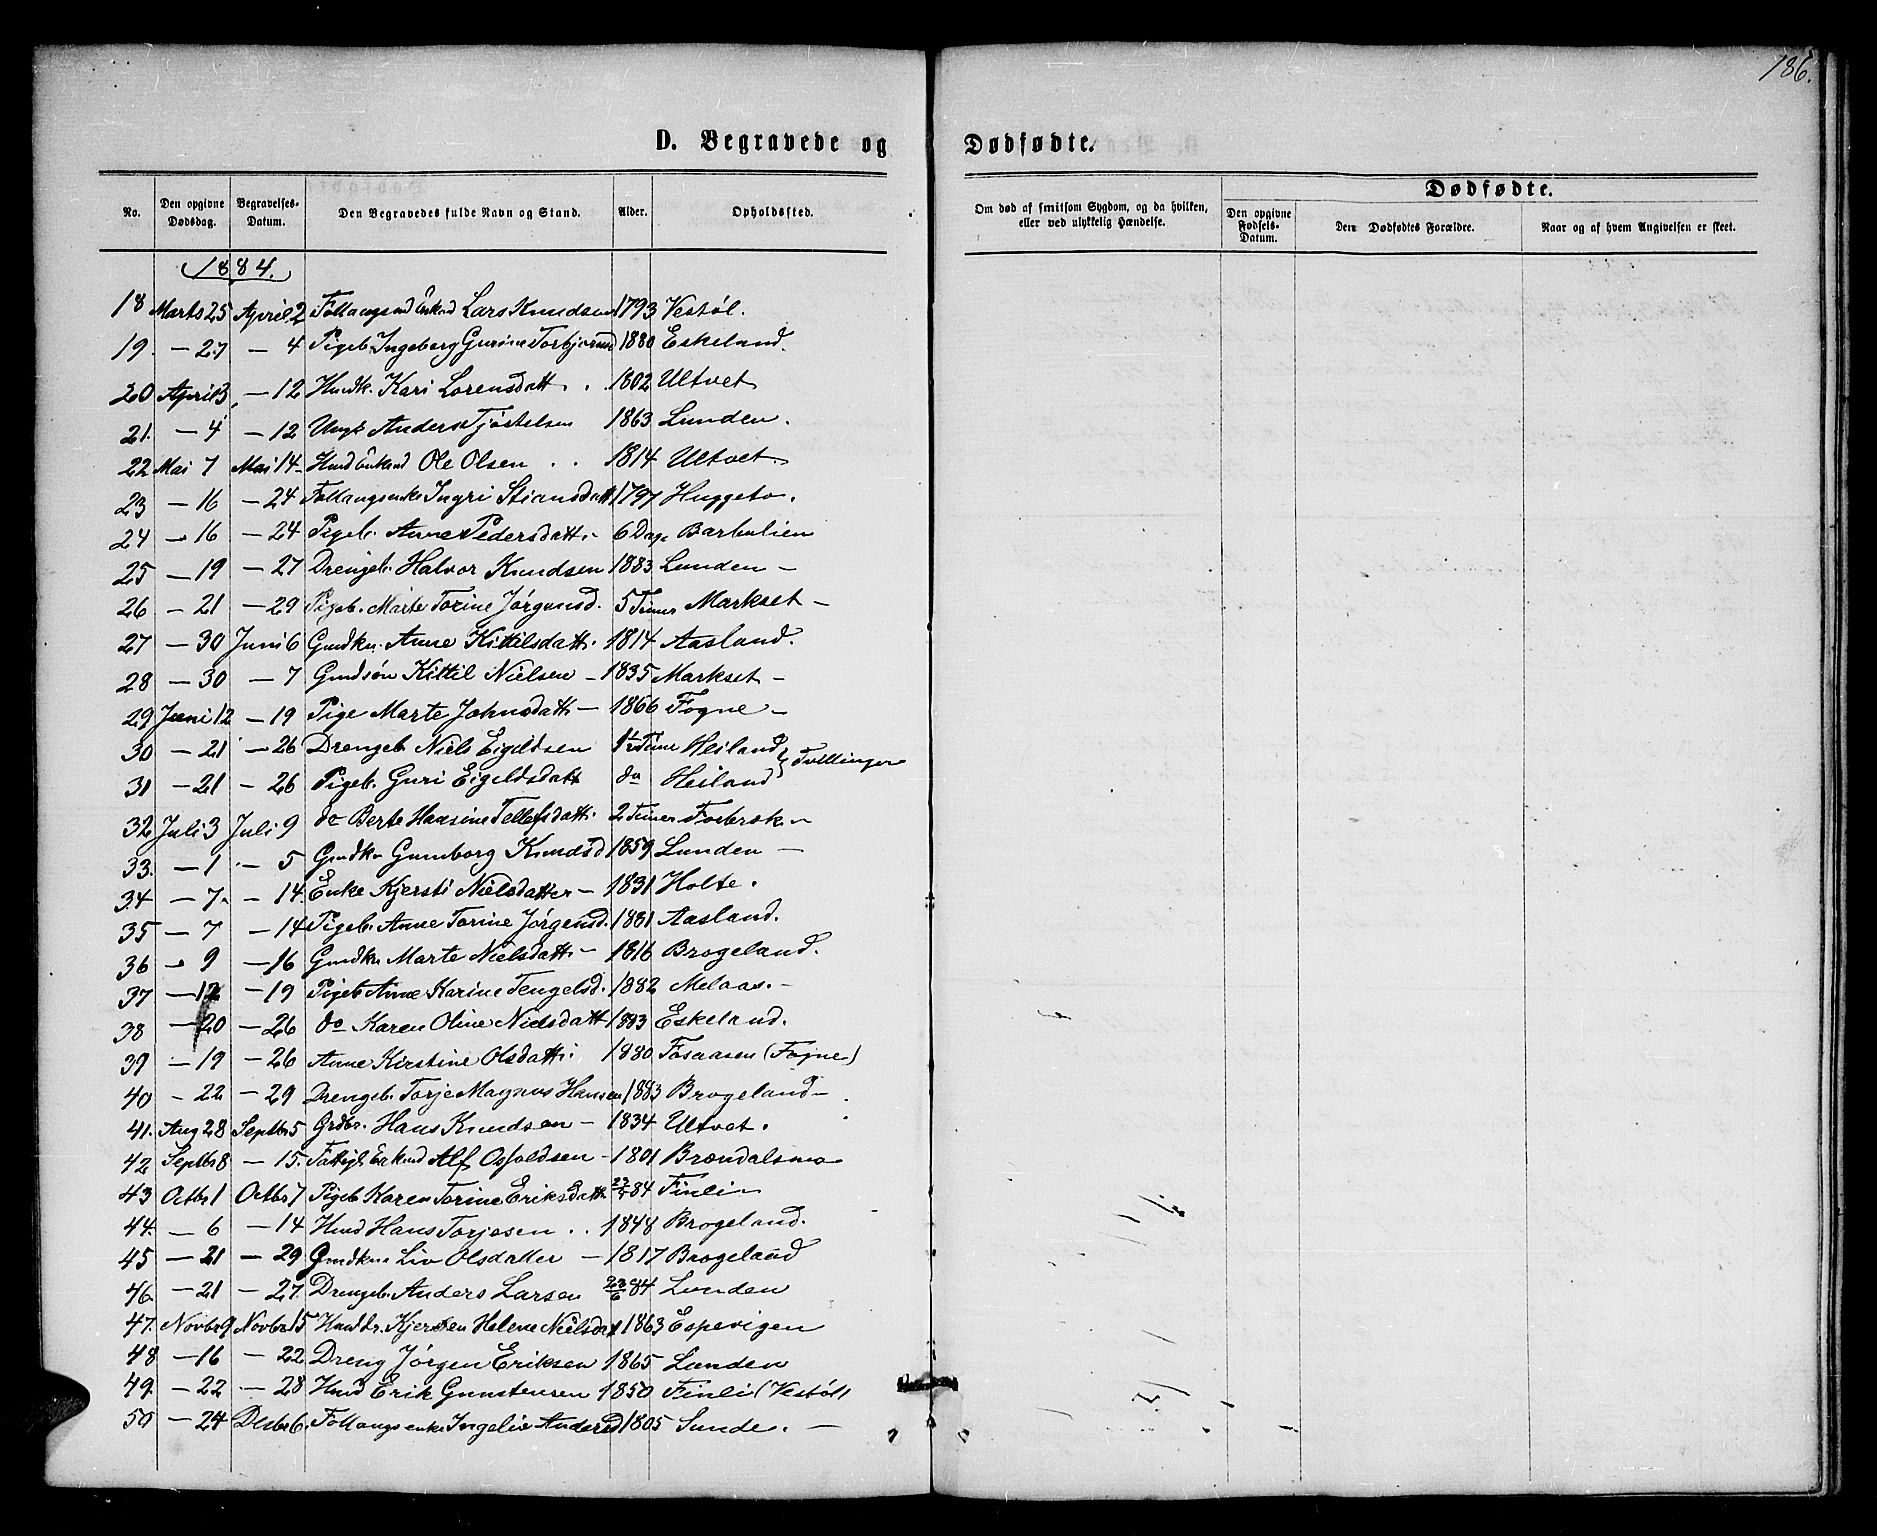 186.
D. Begravede og Dødfødte.
No. Den opgivne Dødsdag. Begravelses-Datum. Den Begravedes fulde Navn og Stand. Alder. Opholdssted. Om død af smitsom Sygdom, og da hvilken, eller ved ulykkelig Hændelse. Dødfødte. Den opgivne Fødsels-Datum. Den Dødfødtes Forældre. Naar og af hvem Angivelsen er skeet.
1884.
18 Marts 25 April 2 Føllaugsmd Enkmd Lars Knudsen 1793 Vestøl.
19. — 27 — 4 Pigeb. Ingeborg Gurine Torbjørnsd 1880 Eskeland.
20 April 3, — 12 Husdk. Kari Lorensdatt. . 1802 Ultvet
21. — 4 — 12 Ungk Anders Tjøstelsen 1863 Lunden.
22 Mai 7 Mai 14 Husd Enkmd Ole Olsen . . 1814 Ultvet.
23 — 16 — 24 Føllaugsenke Ingri Stiansdatt 1797 Huggeto.
24 — 16 — 24 Pigeb. Anne Pedersdatt. 6 Dage Barbulien
25 — 19 — 27 Drengeb. Halvor Knudsen 1883 Lunden —
26 — 21 — 29 Pigeb. Marte Torine Jørgensd. 5 Timer Markset —
27 — 30 Juni 6 Gmdkn. Anne Kittilsdatt. 1814 Aasland.
28 — 30 — 7 Gmdsøn Kittil Nielsen — 1835 Markset —
29 Juni 12 — 19 Pige Marte Johnsdatt — 1866 Fogne —
30 — 21 — 26 Drengeb. Niels Eigeldsen 1½ Time Heiland } Tvillinger
31 — 21 — 26 Pigeb. Guri Eigeldsdatt do Heiland
32 Juli 3 Juli 9 do Berte Hansine Tellefsdatt. 2 Timer Fosbrok —
33. — 1 — 5 Gmdkn Gunborg Knudsd 1859 Lunden —
34 — 7 — 14. Enke Kjersti Nielsdatter — 1831 Holte.
35 — 7 — 14 Pigeb. Anne Torine Jørgensd. 1881 Aasland.
36 — 9 — 16 Gmdkn Marte Nielsdatt. — 1816 Brogeland.
37 — 12 — 19 Pigeb. Anne Karine Tengelsd. 1882 Melaas. —
38 — 20 — 26 do Karen Oline Nielsdatt 1883 Eskeland.
39 — 19 — 26 Anne Kirstine Olsdatt. 1880 Fosaasen (Fogne)
40 — 22 — 29 Drengeb. Torje Magnus Hansen 1883 Brogeland —
41. Aug 28 Septbr 5 Grdbr. Hans Knudsen — 1834 Ultvet.
42 Septbr 8 — 15. Fattigl. Enkmd Alf Osfoldsen — 1801 Brændalsmo
43 Octbr 1 Octbr 7 Pigeb Karen Torine Eriksdatt 84 Finli —
44. — 6 — 14 Husd Hans Torjesen . . 1848 Brogeland.
45 — 21 — 29 Gmdkn Liv Olsdatter — 1817 Brogeland
46. — 21 — 27. Drengeb. Anders Larsen 23/6 84 Lunden
47. Novbr 9 Novbr 15 Husddr. Kjersten Helene Nielsdat 1863 Espevigen
48 — 16 — 22 Dreng Jørgen Eriksen 1865 Lunden
49. — 22 — 28 Husd Erik Gunstensen 1850 Finli (Vestøl)
50 — 24 Decbr 6. Føllaugsenke Ingelie Andersd 1805 Sunde. —